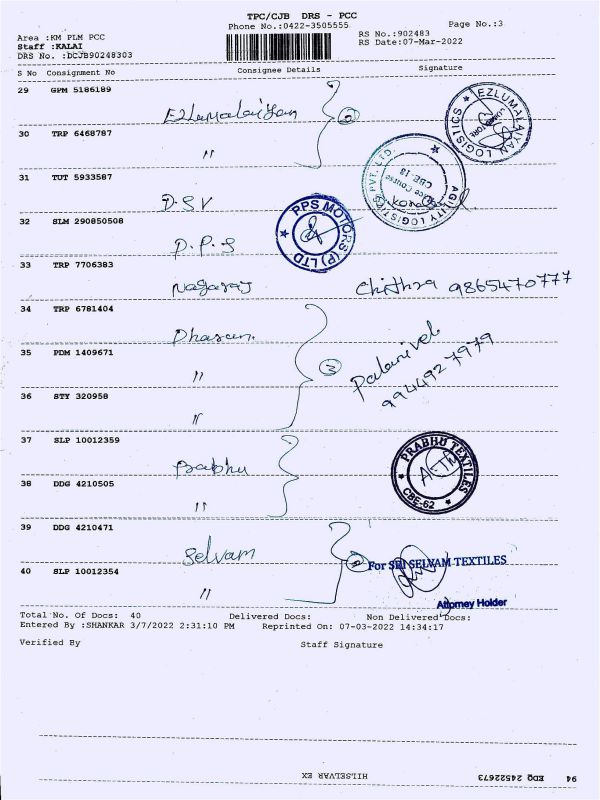 TPC/CJB DRS - PCC
Phone No.:0422-3505555
Page No.:3
Area :KM PLM PCC
RS No.:902483
Staff :KALAI
RS Date:07-Mar-2022
DRS No. :DCJB90248303
S No Consignment No Consignee Details Signature
29 GPM 5186189
Ezlumalaiyan 2
EZLUMALAYAN LOGISTICS
30 TRP 6468787
"
AGILITY LOGISTICS PVT. LTD.
CBE-18
31 TUT 5933587
D.S.V
32 SLM 290850508
PPS MOTORS (P) LTD
D.P.S
33 TRP 7706383
Nagaraj Chithra 9865470777
34 TRP 6781404
Dharun.
35 PDM 1409671
" 3 Palanivel
9944927979
36 STY 320958
"
37 SLP 10012359
Babhu
PRABHU TEXTILES
CBE-62
38 DDG 4210505
"
39 DDG 4210471
Selvam 2
For SRI SELVAM TEXTILES
40 SLP 10012354
"
Attorney Holder
Total No. Of Docs: 40 Delivered Docs: Non Delivered Docs:
Entered By :SHANKAR 3/7/2022 2:31:10 PM Reprinted On: 07-03-2022 14:34:17
Verified By Staff Signature
94 EDQ 24522673 HILSELVAR EX